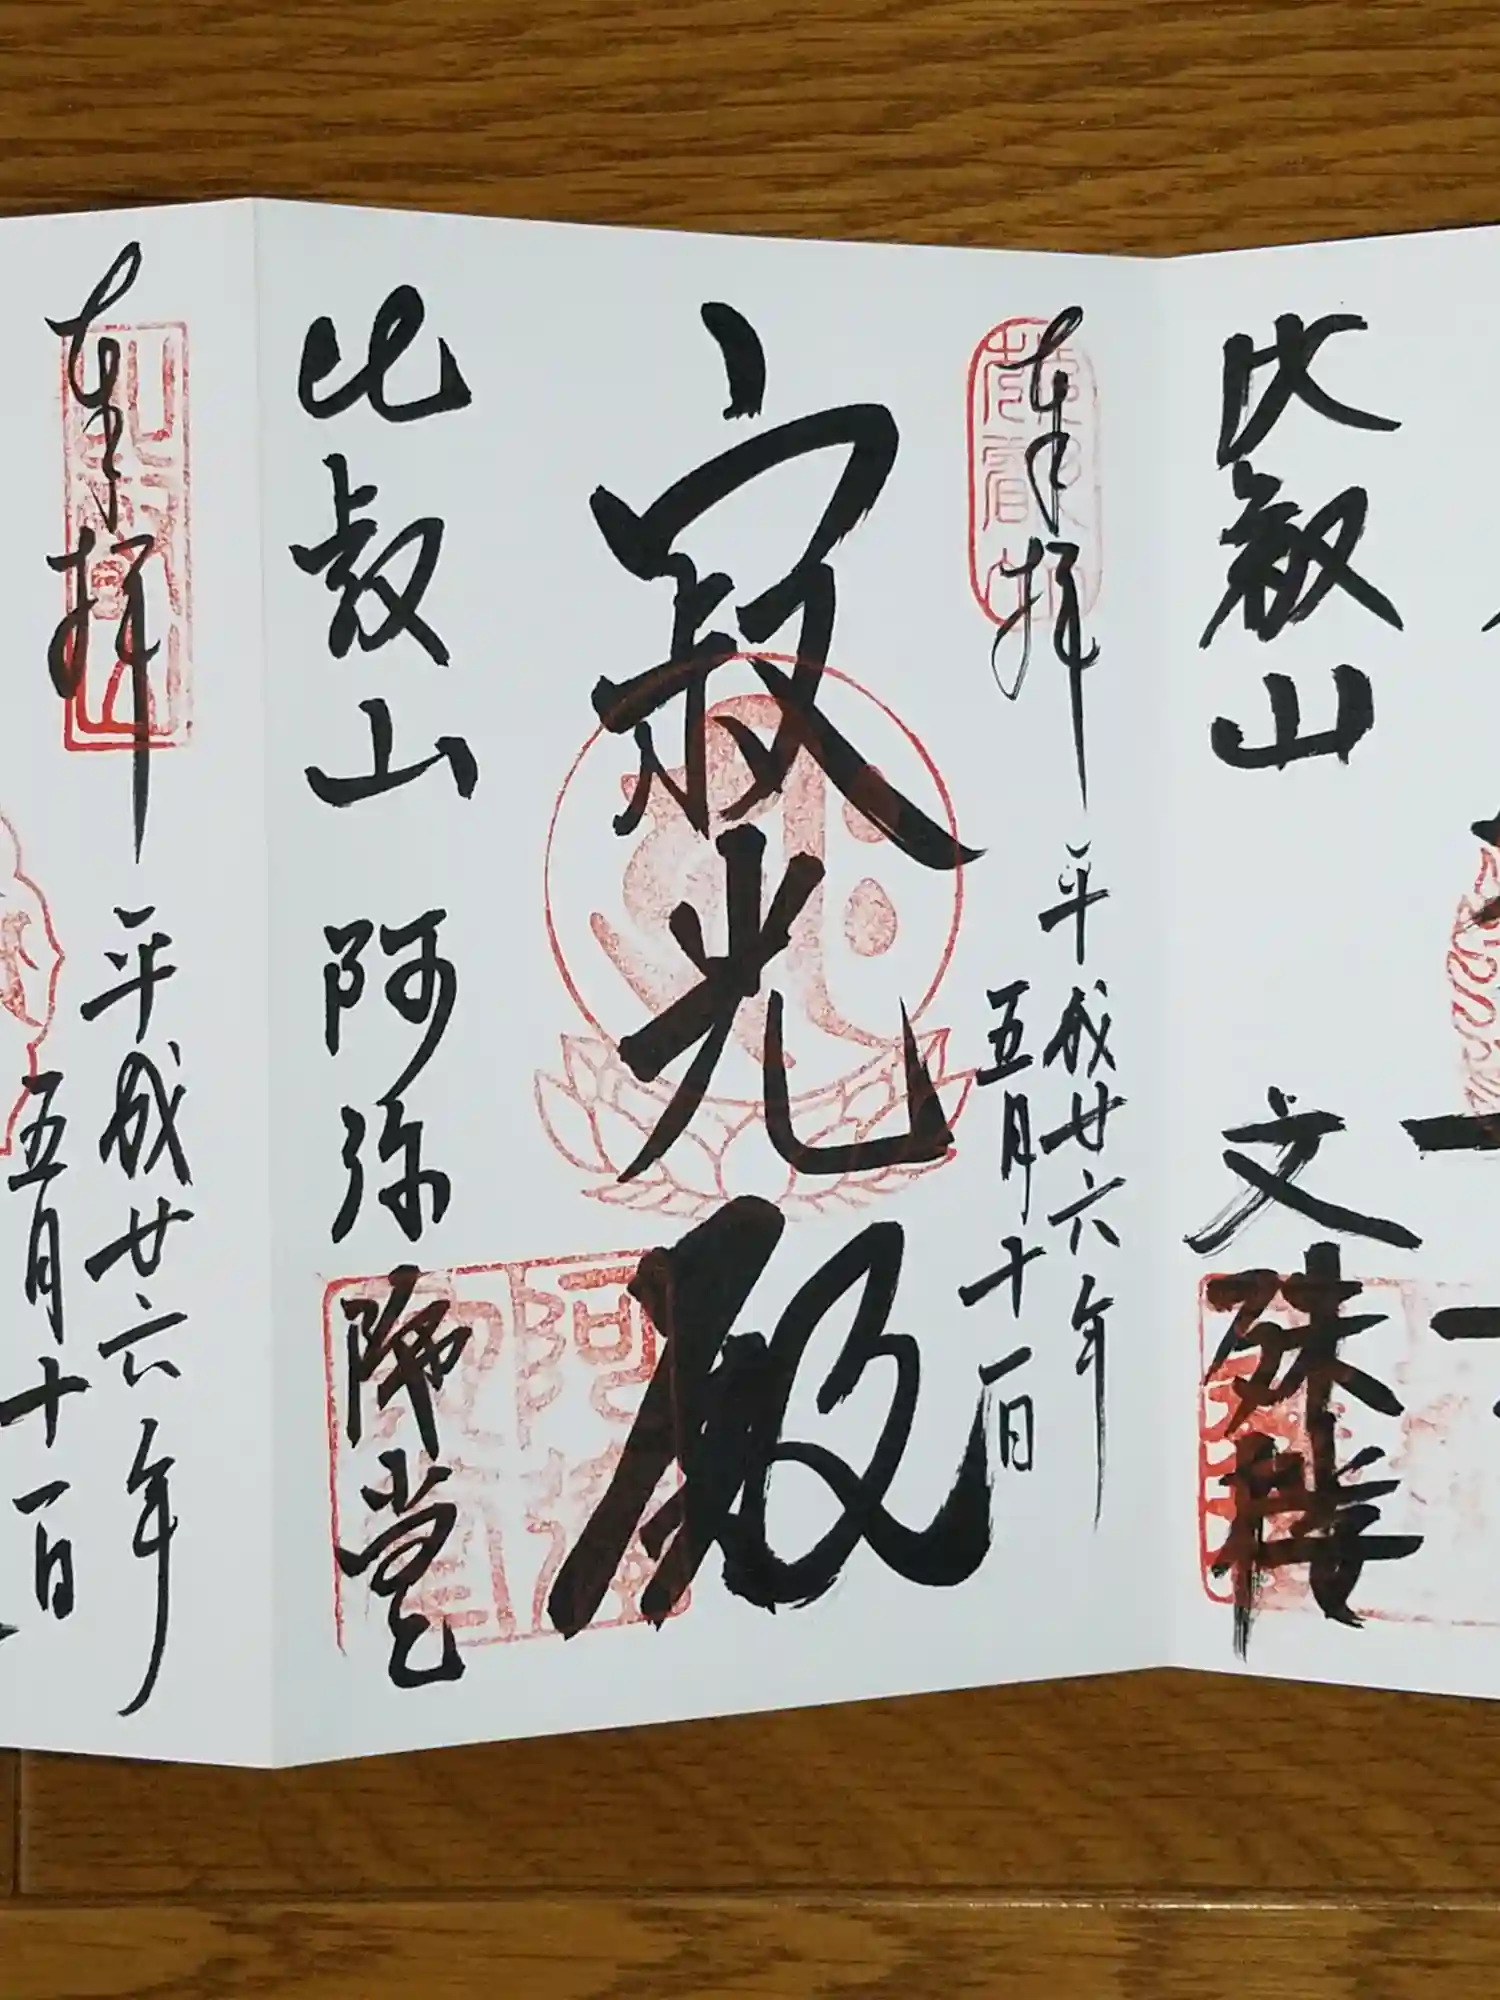 比叡山
文殊楼
奉拝
平成廿六年
五月十一日
寂光殿
比叡山 阿弥陀堂
奉拝
平成廿六年
五月十一日